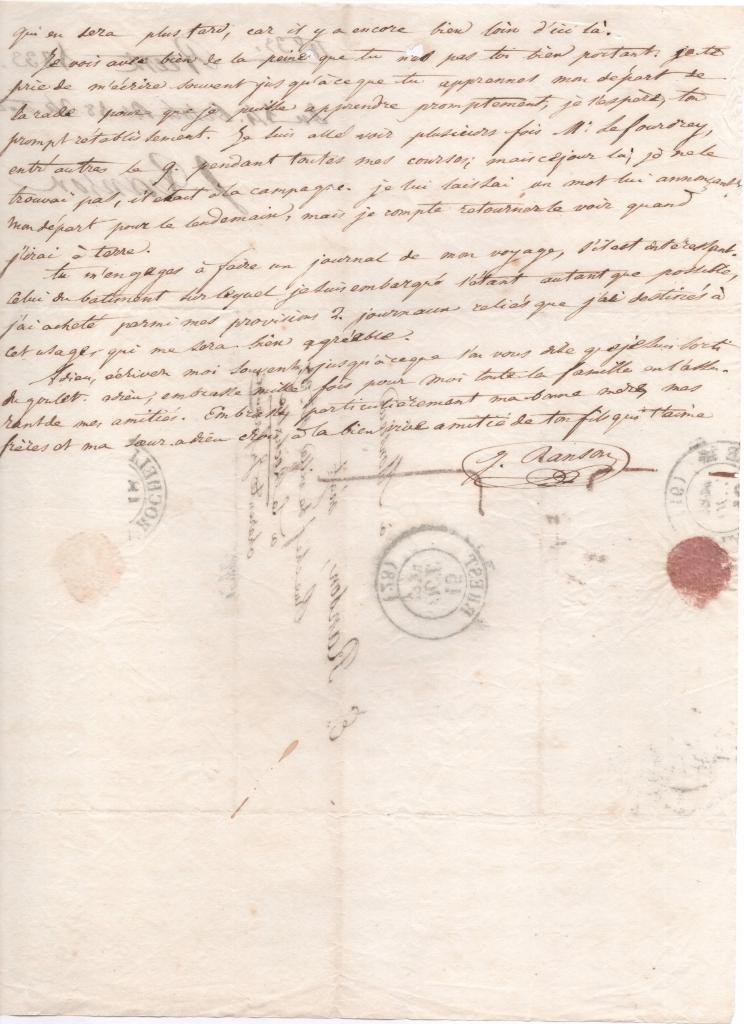 qui en sera plus tard, car il y a encore bien loin d'ici là.
Je vois avec bien de la peine que tu n'es pas toi bien portant: je te
prie de m'écrire souvent jusqu'à ce que tu apprennes mon départ de
la rade pour que je puisse apprendre promptement, je l'espère, ton
prompt rétablissement. Je suis allé voir plusieurs fois Mr. Lefourdrey,
entr'autres le 9. pendant toutes mes courses; mais ce jour là, je ne le
trouvai pas, il était à la campagne. je lui laissai un mot lui annonçant
mon départ pour le lendemain, mais je compte retourner le voir quand
j'irai à terre.
tu m'engages à faire un journal de mon voyage, s'il est intéressant.
Celui du batiment sur lequel je suis embarqué l'étant autant que possible,
j'ai acheté parmi mes provisions 2 journaux reliés que j'ai destinés à
cet usage, qui me sera bien agréable.
Adieu, écrivez moi souvent, jusqu'à ce que l'on vous dise que je suis sorti
du goulet. adieu; embrasse mille fois pour moi toute la famille en l'assu-
rant de mes amitiés. Embrasse particulièrement ma bonne mère, mes
frères et ma sœur. adieu crois à la bien vive amitié de ton fils qui t'aime
G. Ranson
BREST
15
OCT
(28)